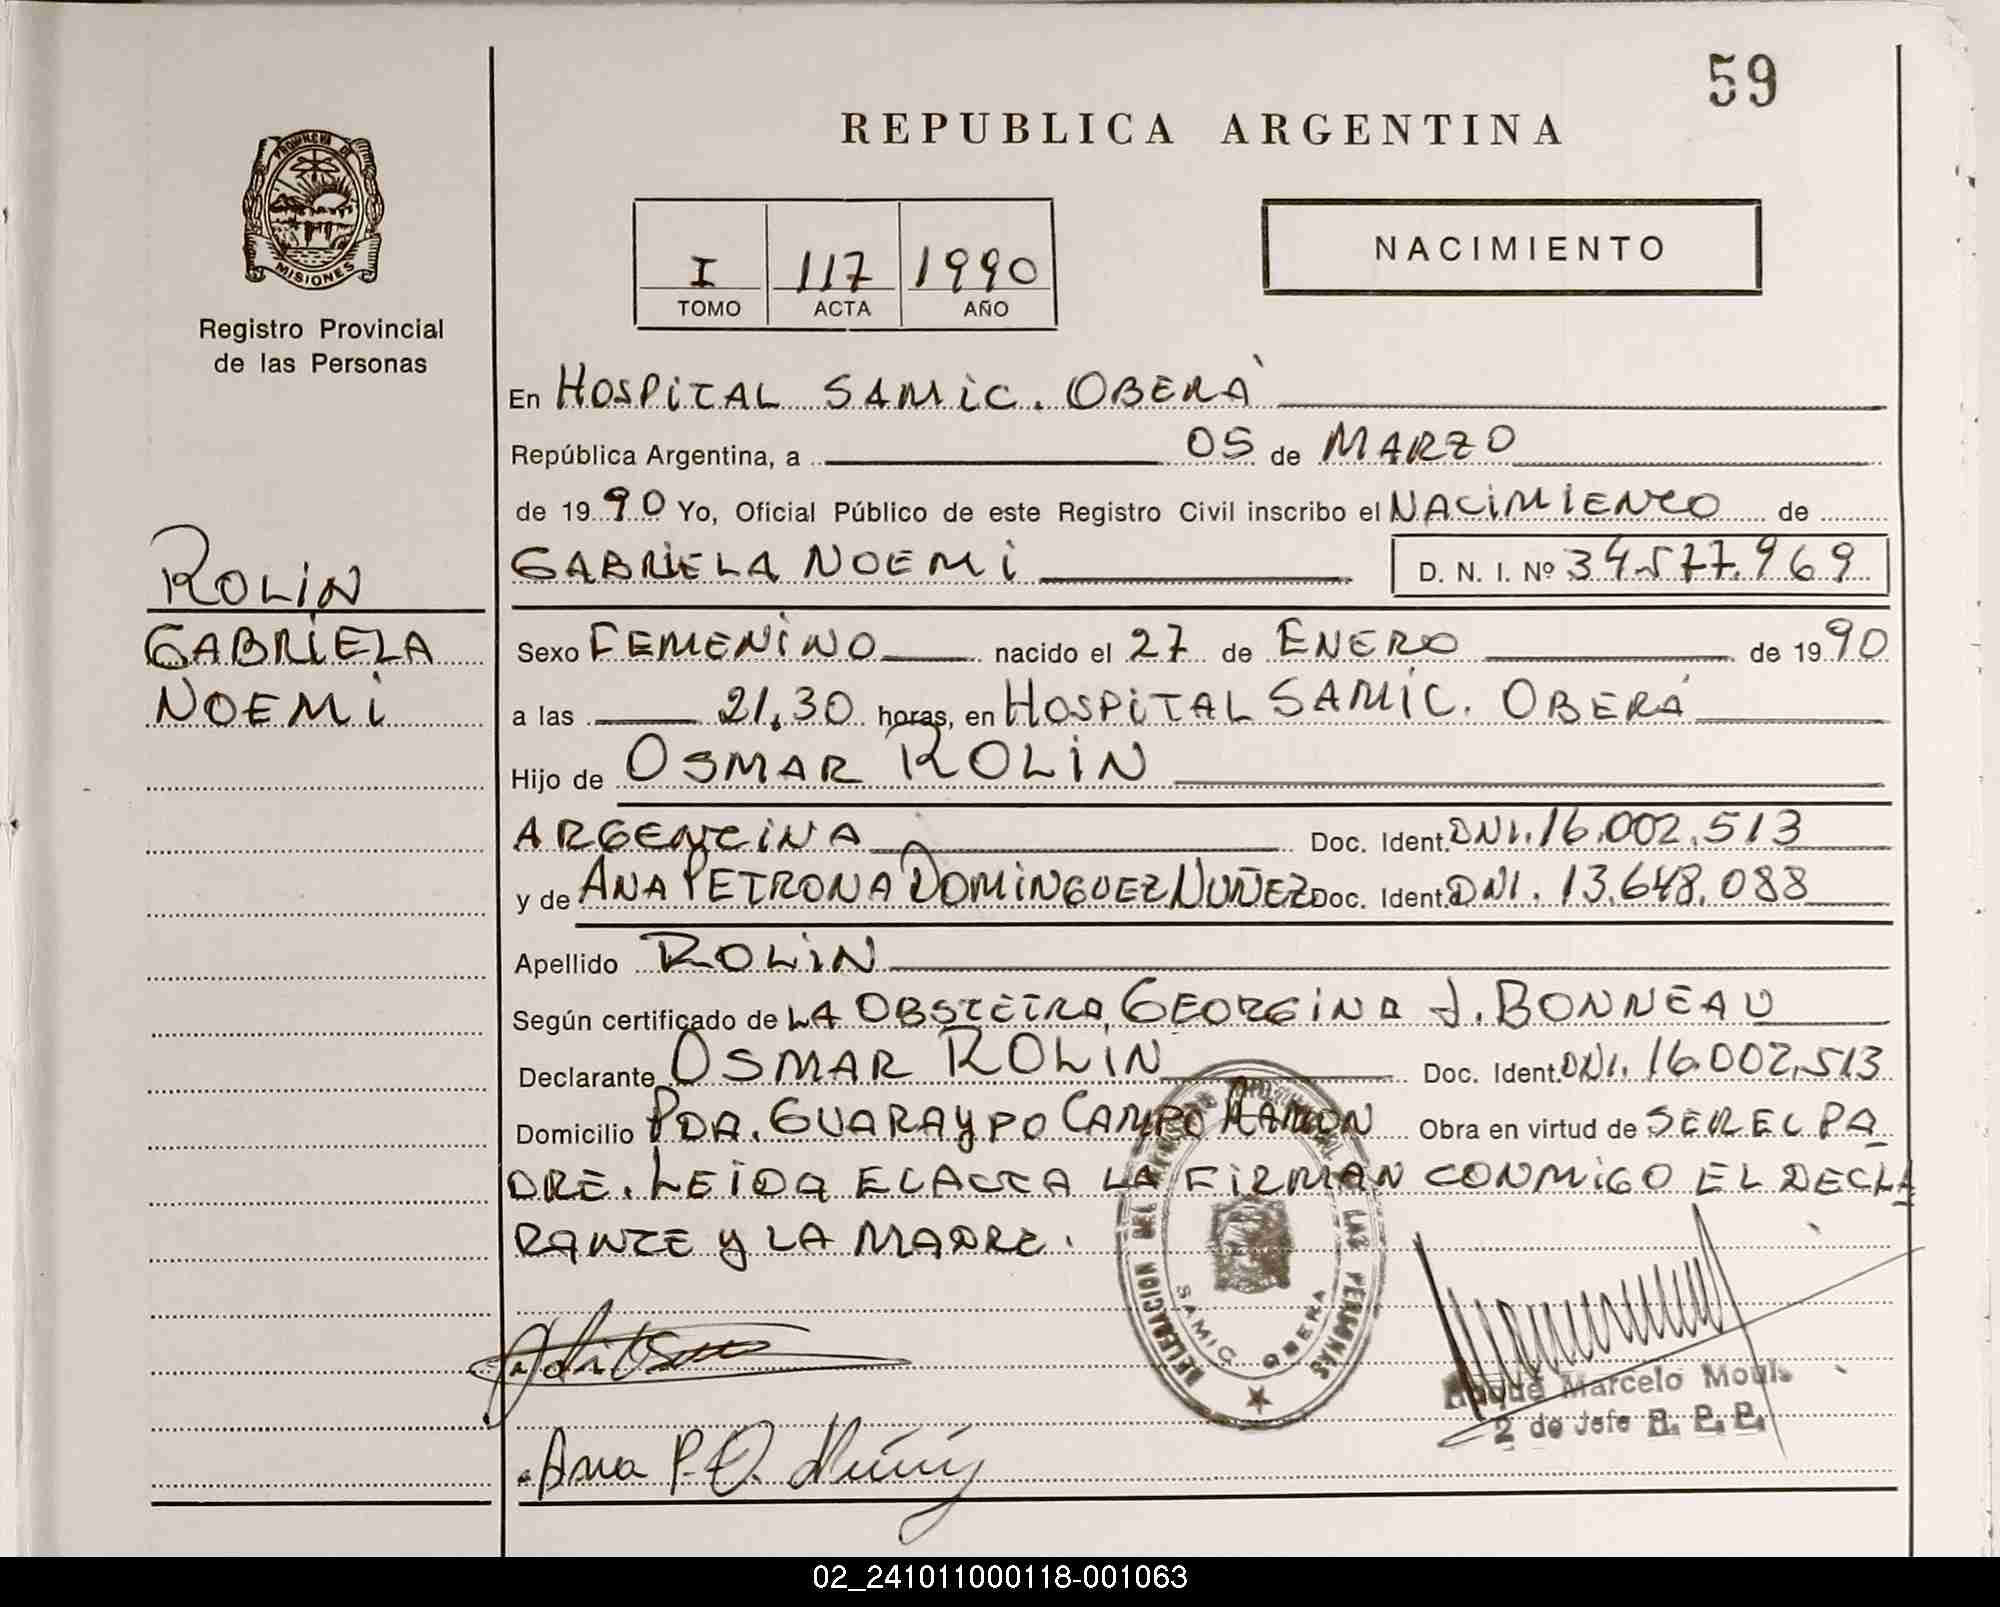 59
REPUBLICA ARGENTINA
PROVINCIA DE
MISIONES
Registro Provincial
de las Personas
I 117 1990
TOMO ACTA AÑO
NACIMIENTO
En HOSPITAL SAMIC. OBERÁ
República Argentina, a 05 de MARZO
de 1990 Yo, Oficial Público de este Registro Civil inscribo el NACIMIENTO de
GABRIELA NOEMI D. N. I. Nº 34.577.969
ROLIN
GABRIELA
NOEMI
Sexo FEMENINO nacido el 27 de ENERO de 1990
a las 21,30 horas, en HOSPITAL SAMIC. OBERÁ
Hijo de OSMAR ROLIN
ARGENTINA Doc. Ident. DNI. 16.002.513
y de ANA PETRONA DOMINGUEZ NUÑEZ Doc. Ident. DNI. 13.648.088
Apellido ROLIN
Según certificado de LA OBSTETRA GEORGINA J. BONNEAU
Declarante OSMAR ROLIN Doc. Ident. DNI. 16.002.513
Domicilio PDA. GUARAYPO CAMPO RAMON Obra en virtud de SER EL PA
DRE. LEIDA EL ACTA LA FIRMAN CONMIGO EL DECLA
RANTE Y LA MADRE.
DELEGACION DEL REGISTRO PROVINCIAL DE LAS PERSONAS
SAMIC OBERA
Ana P. D. Núñez
Marcelo
2 do Jefe R. P. P.
02_241011000118-001063